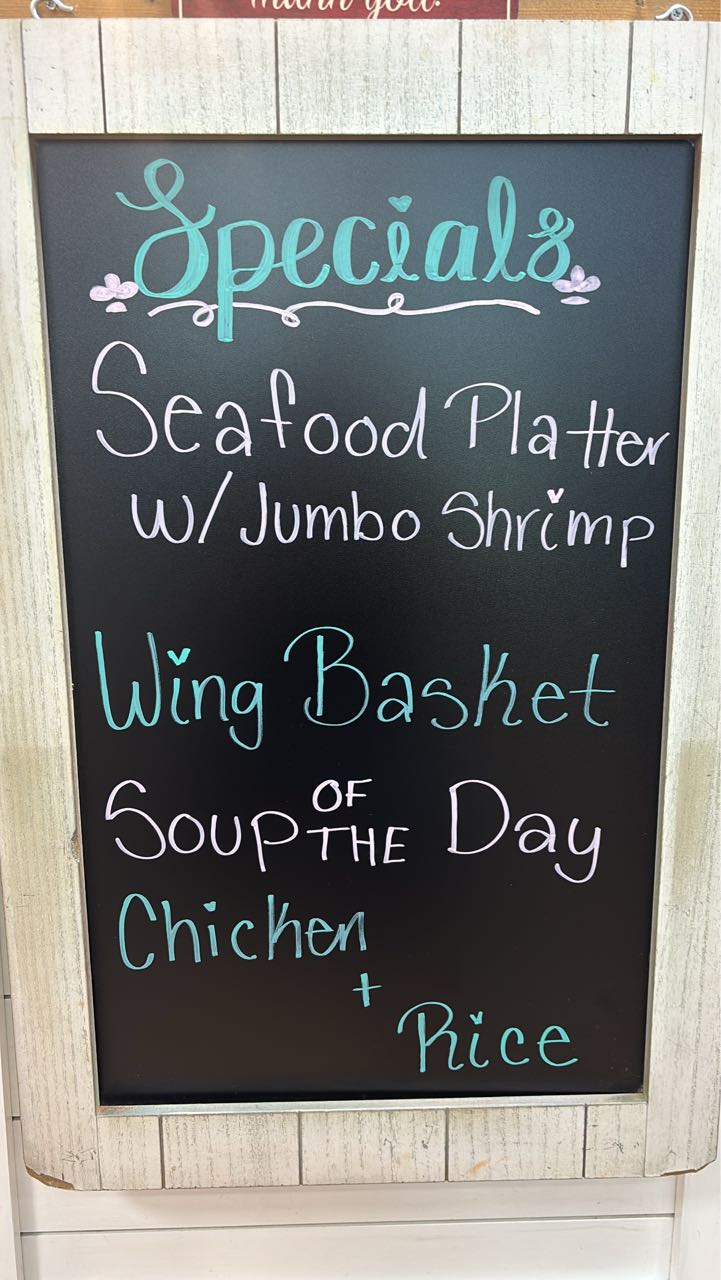 thank you.
Specials
Seafood Platter
w/ Jumbo Shrimp
Wing Basket
Soup OF THE Day
Chicken
+
Rice